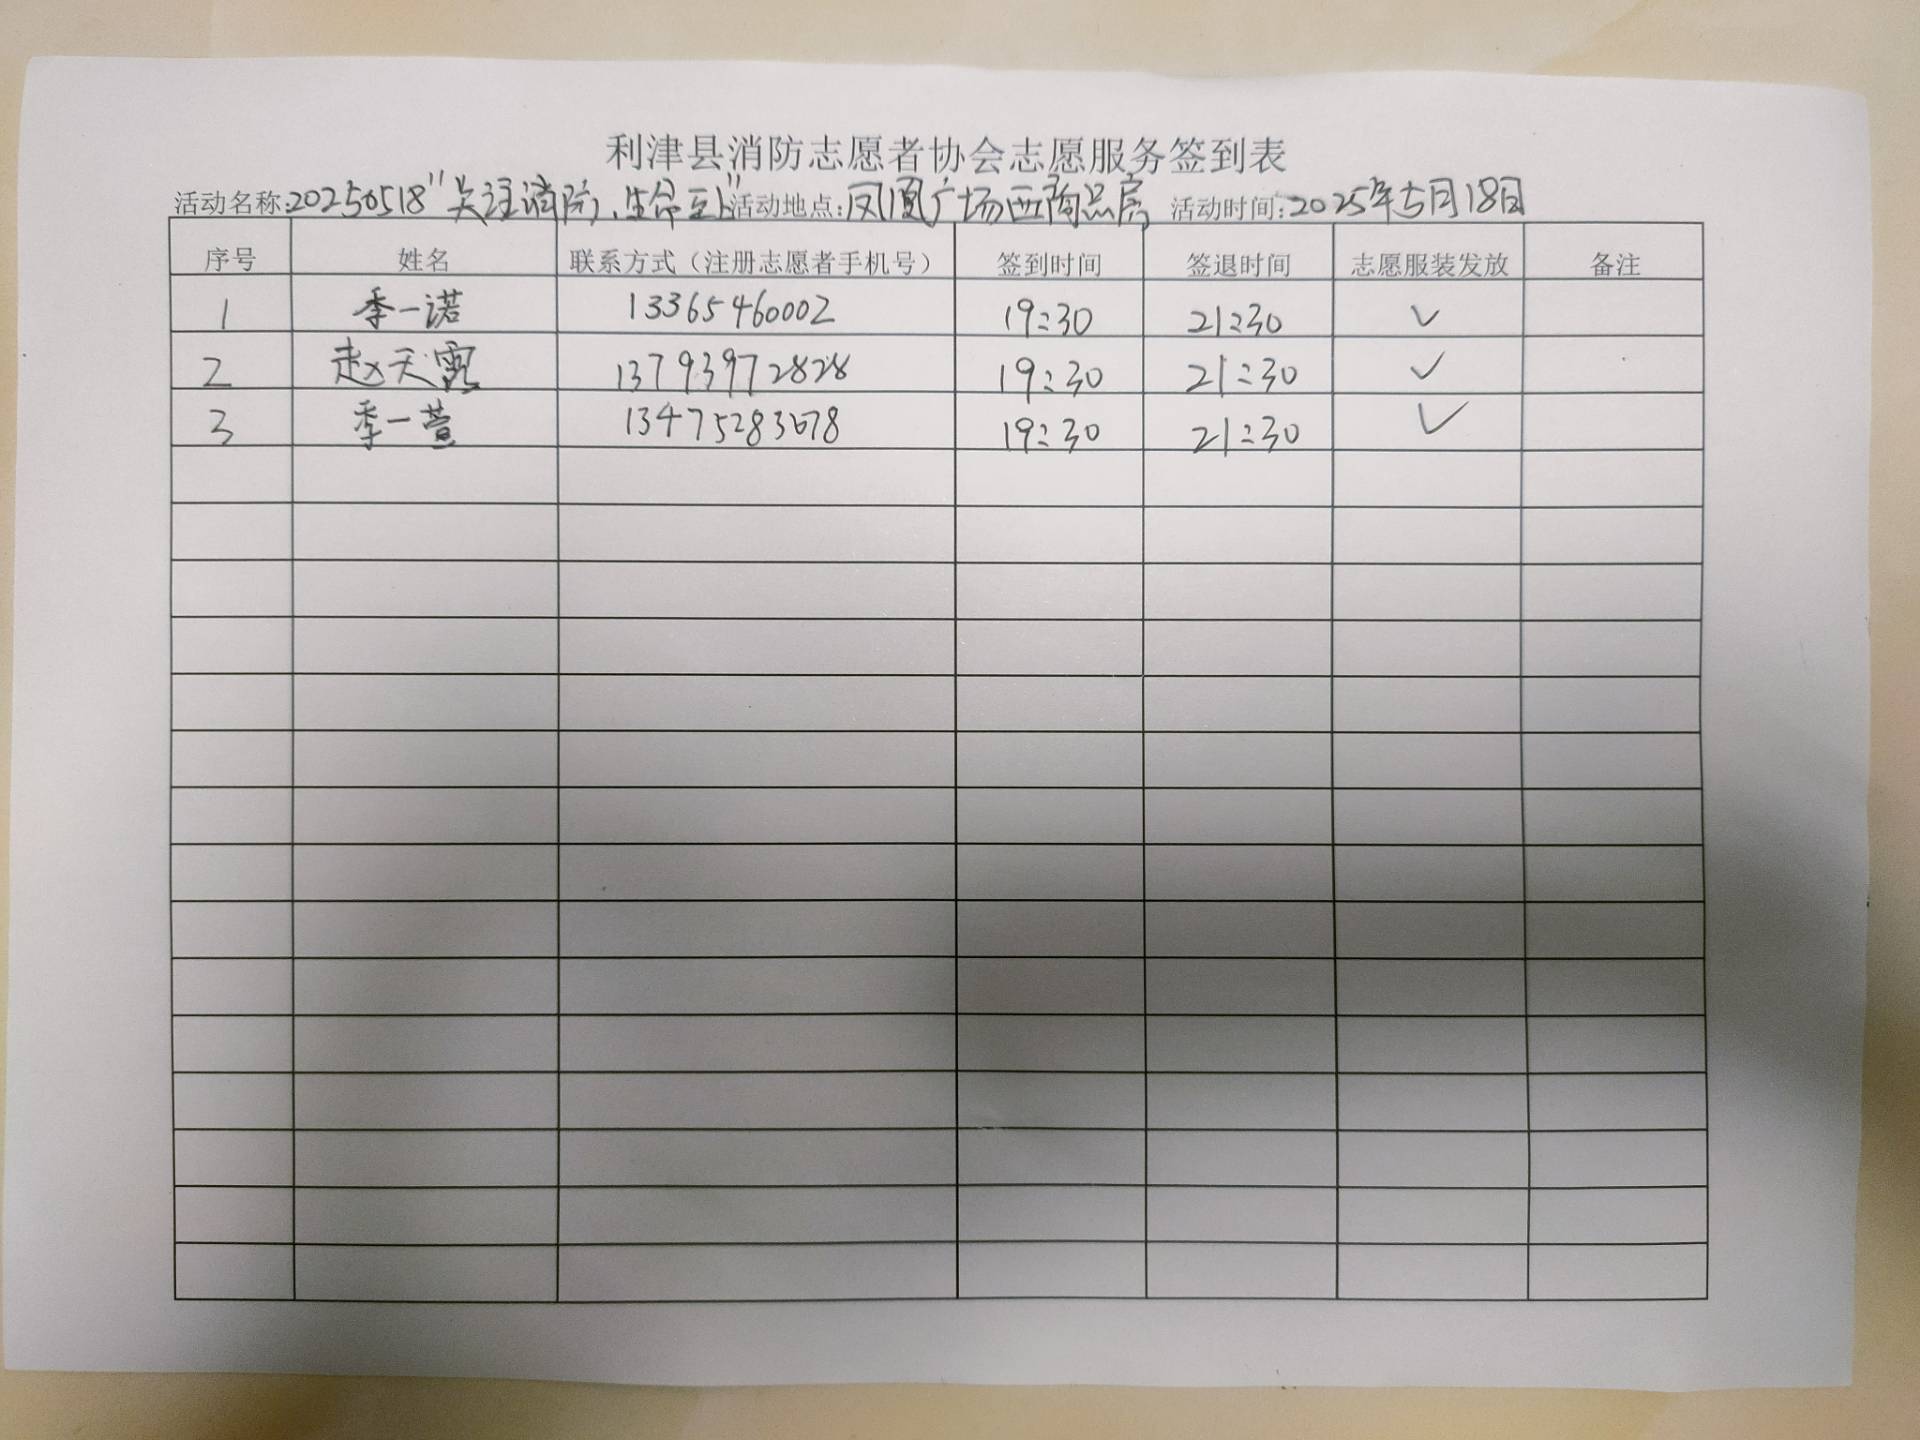 利津县消防志愿者协会志愿服务签到表
活动名称:20250518"关注消防,生命至上"活动地点:凤凰广场西商品房 活动时间:2025年5月18日
序号 姓名 联系方式（注册志愿者手机号） 签到时间 签退时间 志愿服装发放 备注
1 季一诺 13365460002 19:30 21:30 ✓
2 赵天霞 13793972828 19:30 21:30 ✓
3 季一萱 13475283678 19:30 21:30 ✓